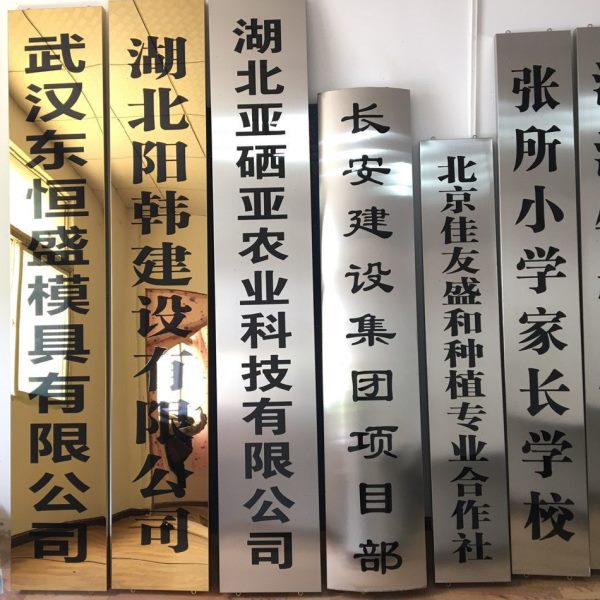 武汉东恒盛模具有限公司
湖北阳韩建设有限公司
湖北亚硒亚农业科技有限公司
长安建设集团项目部
北京佳友盛和种植专业合作社
张所小学家长学校